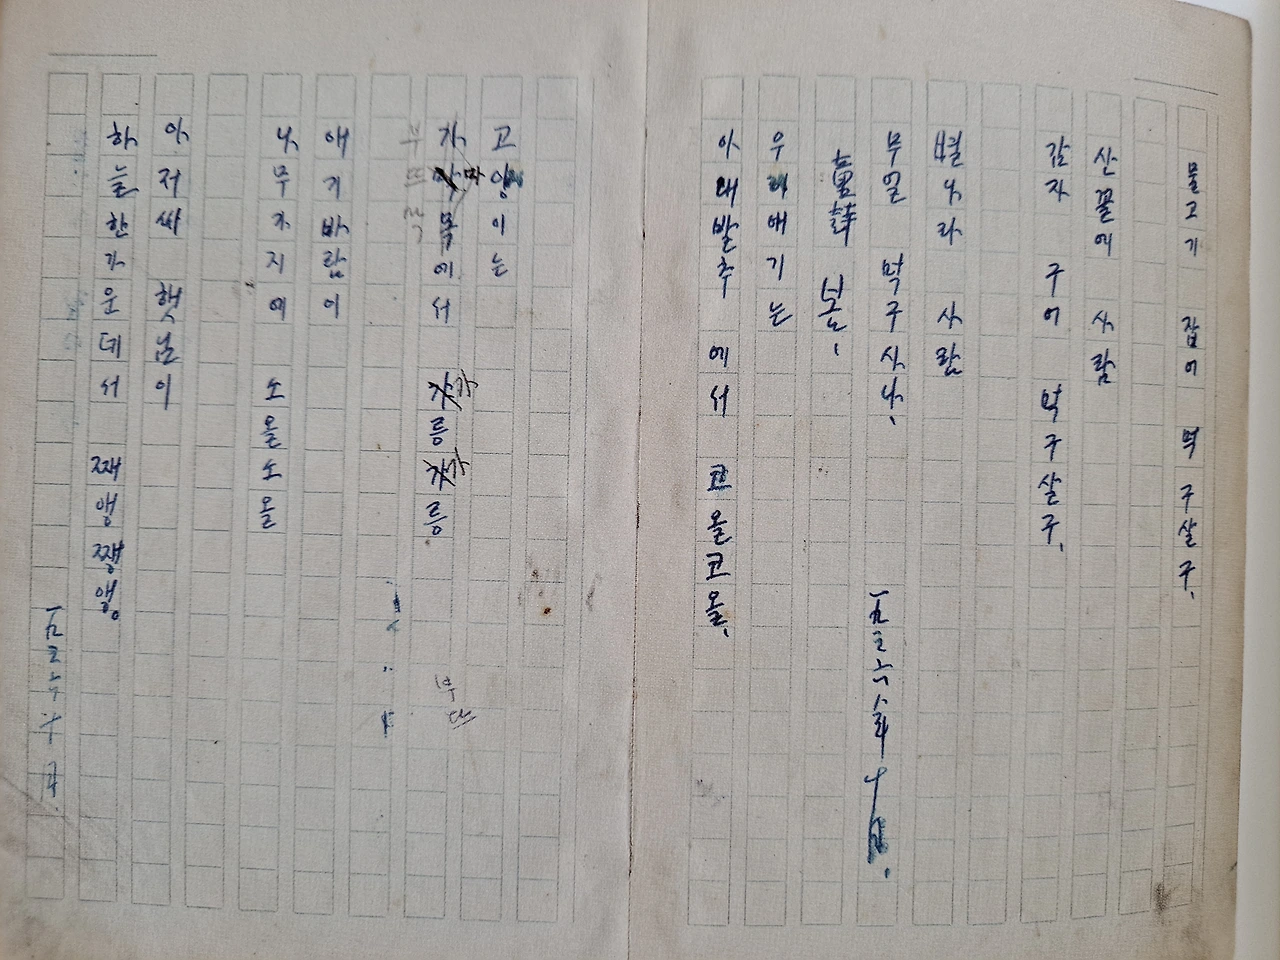 물고기 잡어 먹구살구、
산꼴에 사람
감자 구어 먹구살구、
별나라 사람
무얼 먹구사나、
一九三六年 十月、
童詩 봄、
우리애기는
아래발추에서 코올코올、
고양이는
가마목에서 가릉가릉
애기바람이
나무가지에 소올소올
아저싸 햇님이
하늘한가운데서 째앵째앵。
一九三六、十月、